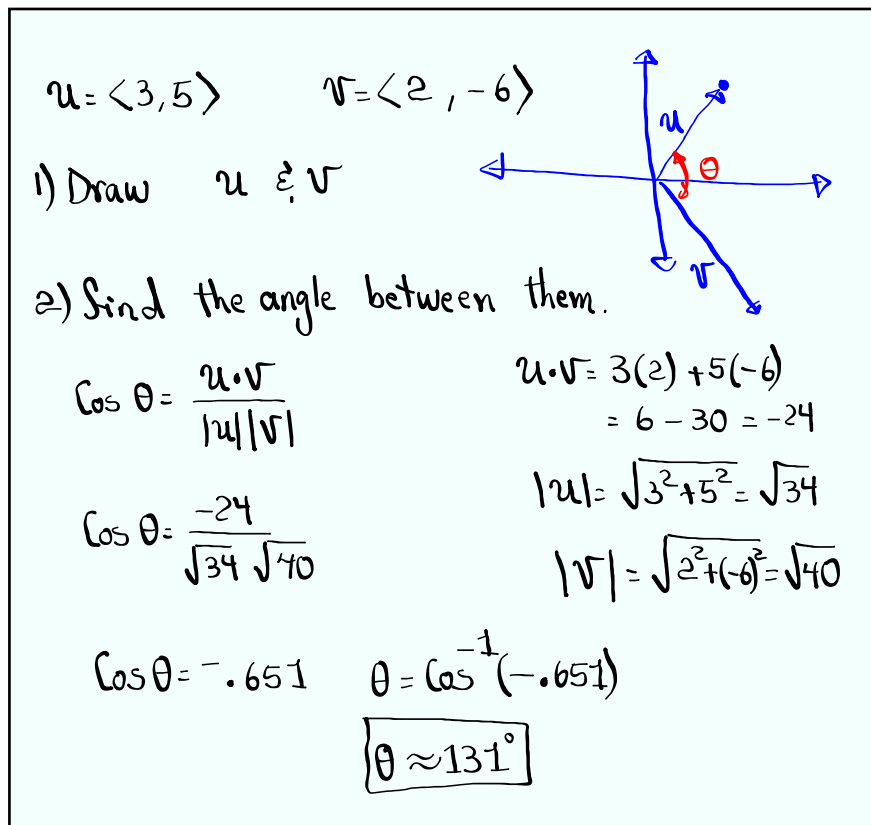 u = <3, 5>    v = <2, -6>
u
θ
1) Draw u & v
v
2) find the angle between them.
Cos θ = u·v / |u||v|
u·v = 3(2) + 5(-6)
= 6 - 30 = -24
|u| = √(3² + 5²) = √34
Cos θ = -24 / √34 √40
|v| = √(2² + (-6)²) = √40
Cos θ = -.651    θ = Cos⁻¹(-.651)
θ ≈ 131°